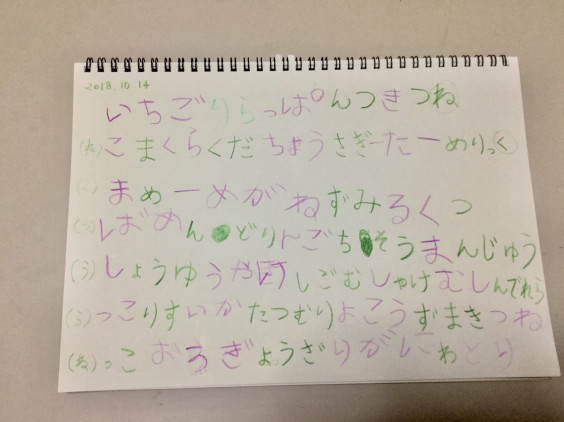 2018.10.14
いちごりらっぱんつきつね
(ね)こまくらくだちょううさぎーたーめりっく
(く)まめーめがねずみるくつ
(つ)しばめんどりんごちそうまんじゅう
(う)しょうゆうやけしごむしゃけむしんでれら
(ら)っこりすいかたつむりよこうずまきつね
(ね)っこおうぎょうざりがにわとり